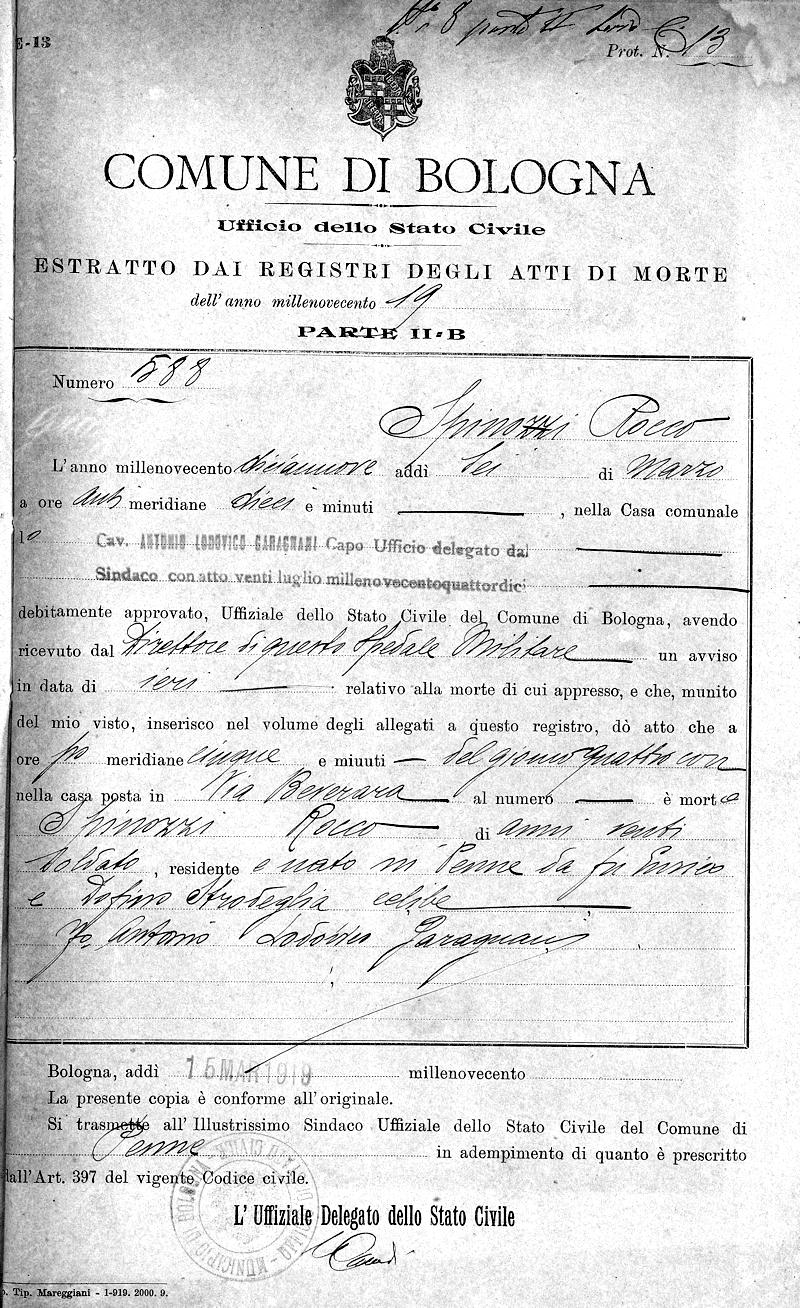 N. 8 parte II Serie C
E-13
Prot. N. 13
COMUNE DI BOLOGNA
Ufficio dello Stato Civile
ESTRATTO DAI REGISTRI DEGLI ATTI DI MORTE
dell'anno millenovecento 19
PARTE II-B
Numero 588
Spinozzi Rocco
L'anno millenovecento diciannove addì sei di Marzo
a ore anti meridiane dieci e minuti , nella Casa comunale
Io Cav. ANTONIO LODOVICO GARAGNANI Capo Ufficio delegato dal
Sindaco con atto venti luglio millenovecentoquattordici
debitamente approvato, Uffiziale dello Stato Civile del Comune di Bologna, avendo
ricevuto dal Direttore di questo Spedale Militare un avviso
in data di ieri relativo alla morte di cui appresso, e che, munito
del mio visto, inserisco nel volume degli allegati a questo registro, dò atto che a
ore po meridiane cinque e miuuti del giorno quattro corr
nella casa posta in Via Beverara al numero è morto
Spinozzi Rocco di anni venti
soldato , residente e nato in Penne da fu Enrico
e Strodeglia celibe
Fo Antonio Lodovico Garagnani
Bologna, addì 15 MAR 1919 millenovecento
La presente copia è conforme all'originale.
Si trasmette all'Illustrissimo Sindaco Uffiziale dello Stato Civile del Comune di
Penne in adempimento di quanto è prescritto
dall'Art. 397 del vigente Codice civile.
L'Uffiziale Delegato dello Stato Civile
MUNICIPIO DI BOLOGNA
Tip. Mareggiani - 1-919. 2000. 9.